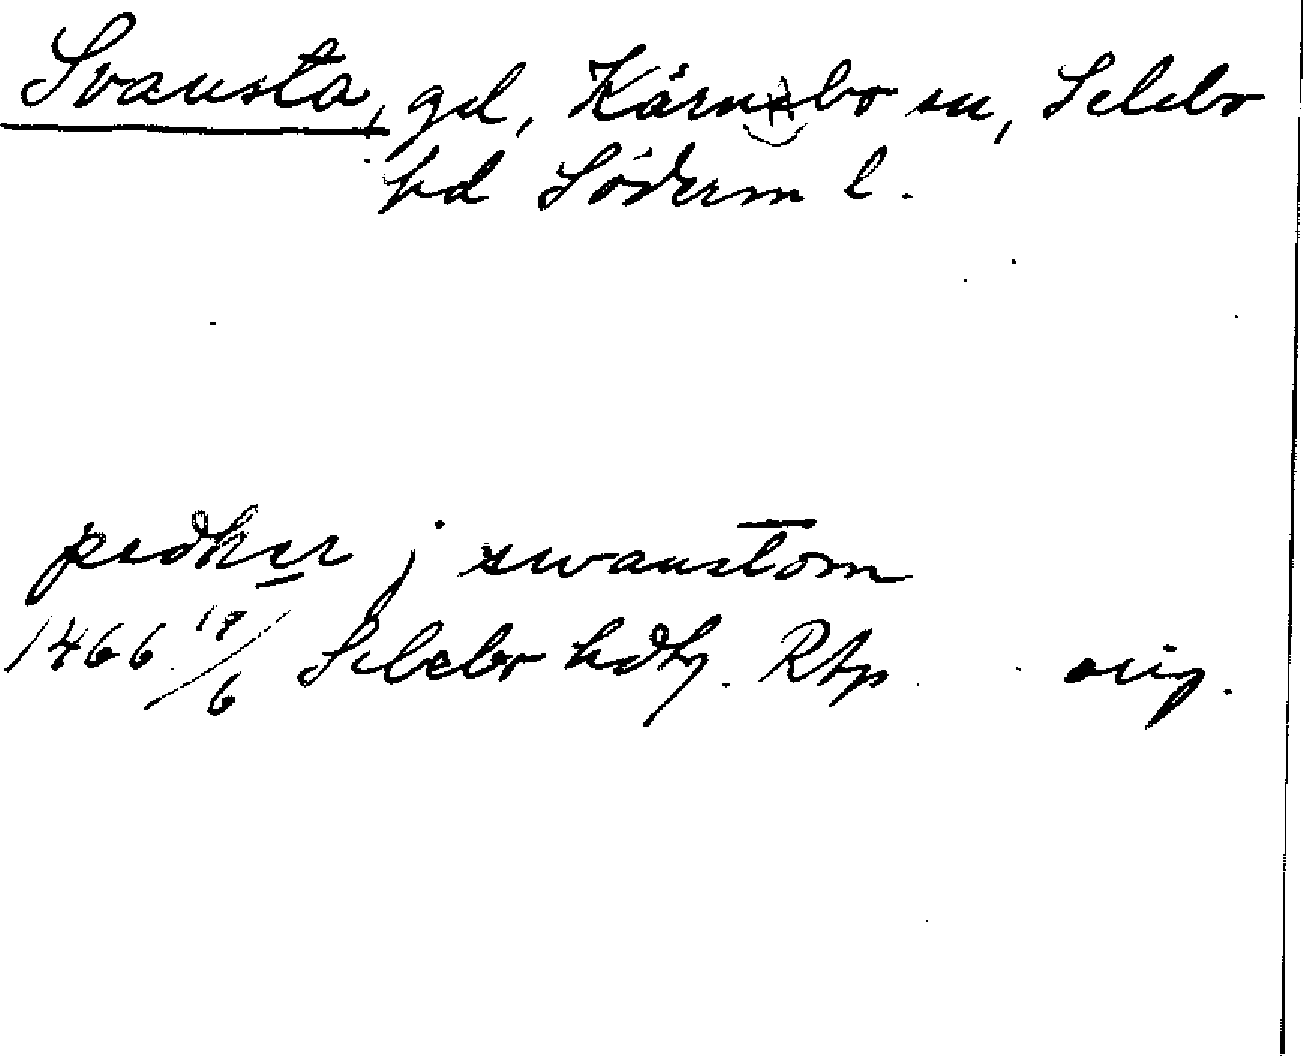 Svansta, gd, Kärnbo sn, Selebo
hd Söderm l.
pedher j swanstom
1466 18/6 Selebo hdtg. Rtp orig.